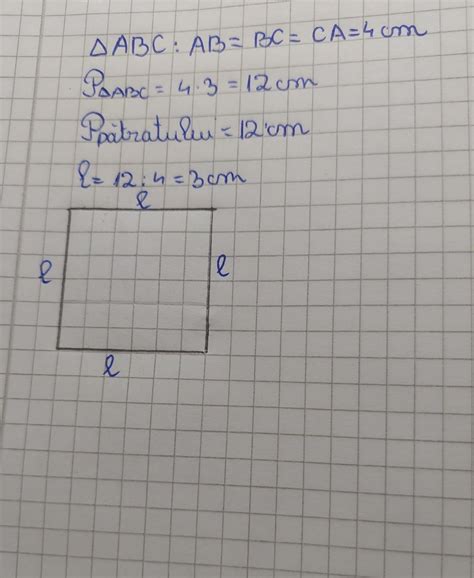 ΔABC : AB = BC = CA = 4 cm
PΔABC = 4 · 3 = 12 cm
Ppătratului = 12 cm
l = 12 : 4 = 3 cm
l
l l
l